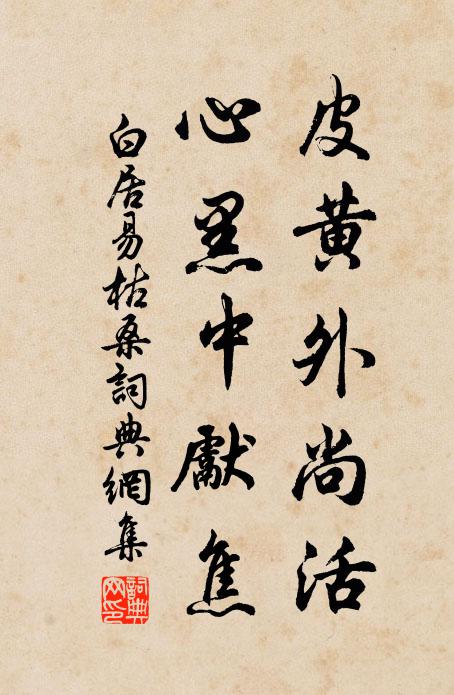 皮黄外尚活
心黑中獻焦
白居易枯桑詞典網集
詞典网印